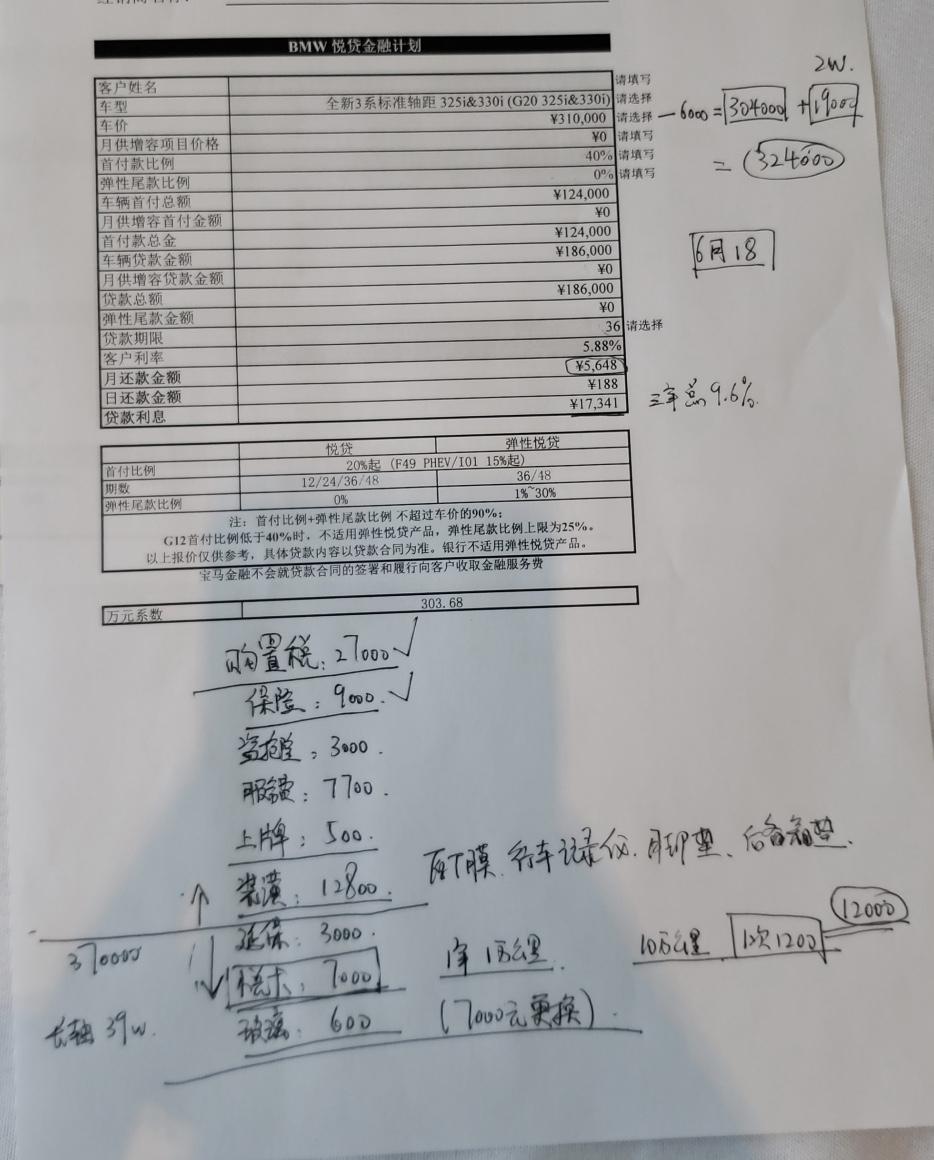 BMW 悦贷金融计划
客户姓名 请填写
车型 全新3系标准轴距 325i&330i (G20 325i&330i) 请选择
车价 ¥310,000 请选择
月供增容项目价格 ¥0 请填写
首付款比例 40% 请填写
弹性尾款比例 0% 请填写
车辆首付总额 ¥124,000
月供增容首付金额 ¥0
首付款总金 ¥124,000
车辆贷款金额 ¥186,000
月供增容贷款金额 ¥0
贷款总额 ¥186,000
弹性尾款金额 ¥0
贷款期限 36 请选择
客户利率 5.88%
月还款金额 ¥5,648
日还款金额 ¥188
贷款利息 ¥17,341
2W.
-6000=304000+19000
=324000
6月18
三年总9.6%.
悦贷 弹性悦贷
首付比例 20%起 (F49 PHEV/I01 15%起)
期数 12/24/36/48 36/48
弹性尾款比例 0% 1%~30%
注：首付比例+弹性尾款比例 不超过车价的90%；
G12首付比例低于40%时，不适用弹性悦贷产品，弹性尾款比例上限为25%。
以上报价仅供参考，具体贷款内容以贷款合同为准。银行不适用弹性悦贷产品。
宝马金融不会就贷款合同的签署和履行向客户收取金融服务费
万元系数 303.68
购置税：27000 ✓
保险：9000. ✓
盗抢险：3000.
服务费：7700.
上牌：500.
装潢：12800. 百T膜.行车记录仪.脚垫、后备箱垫.
370000
延保：3000. 10万公里 1次1200 12000
机油卡：7000 1年1万公里.
长轴39w. 玻璃：600 (7000元更换).